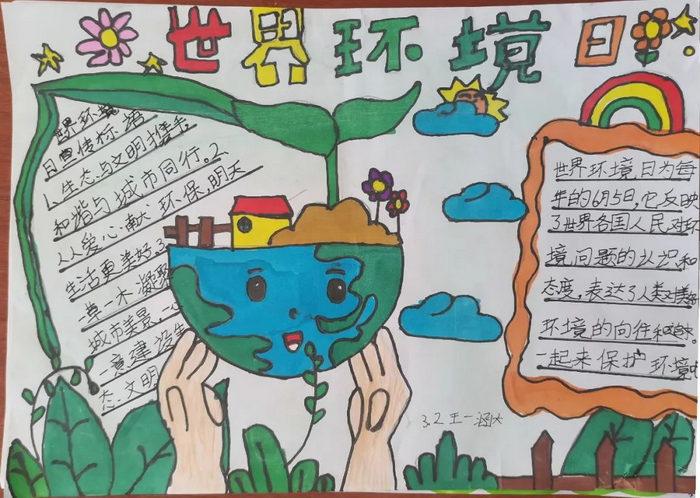 世界环境日
世界环境
日宣传标语
1、生态与文明才携手,
和谐与城市同行。2、
人人爱心献环保,明天
生活更美好3
草一木凝聚
城市美景,一心
一意建设生
态文明
世界环境日为每
年的6月5日,它反映
了世界各国人民对环
境问题的认识和
态度,表达了人类对美好
环境的向往和追求。
一起来保护环境吧
3.2 王一涵